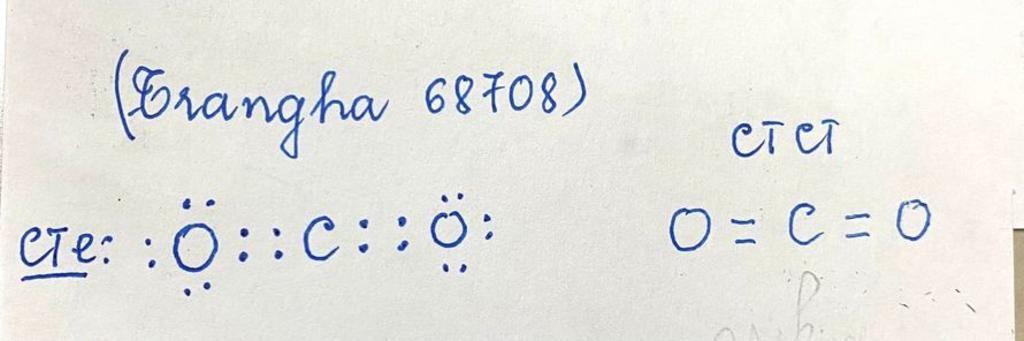 (Trangha 68708)
CTCT
CTe: :Ö::C::Ö: O=C=O